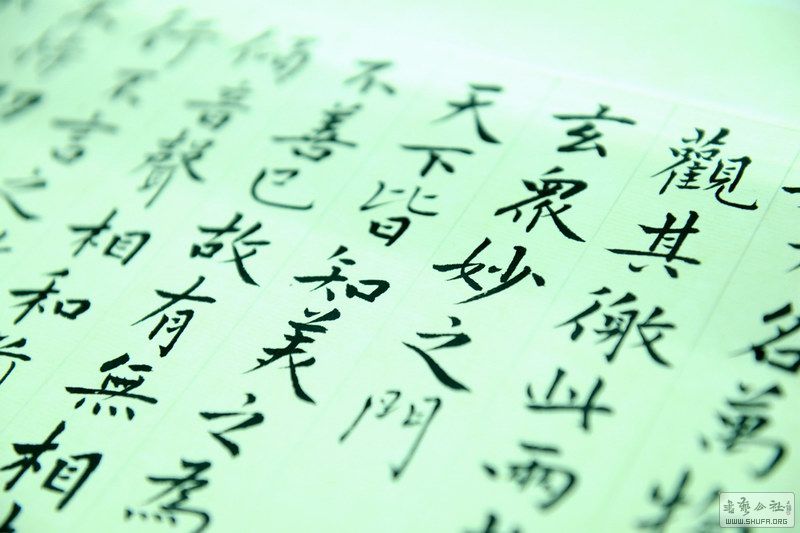 名萬物
觀其徼此兩
玄眾妙之門
天下皆知美之為
不善已故有無相
傾音聲相和前
行不言之
書藝公社
WWW.SHUFA.ORG